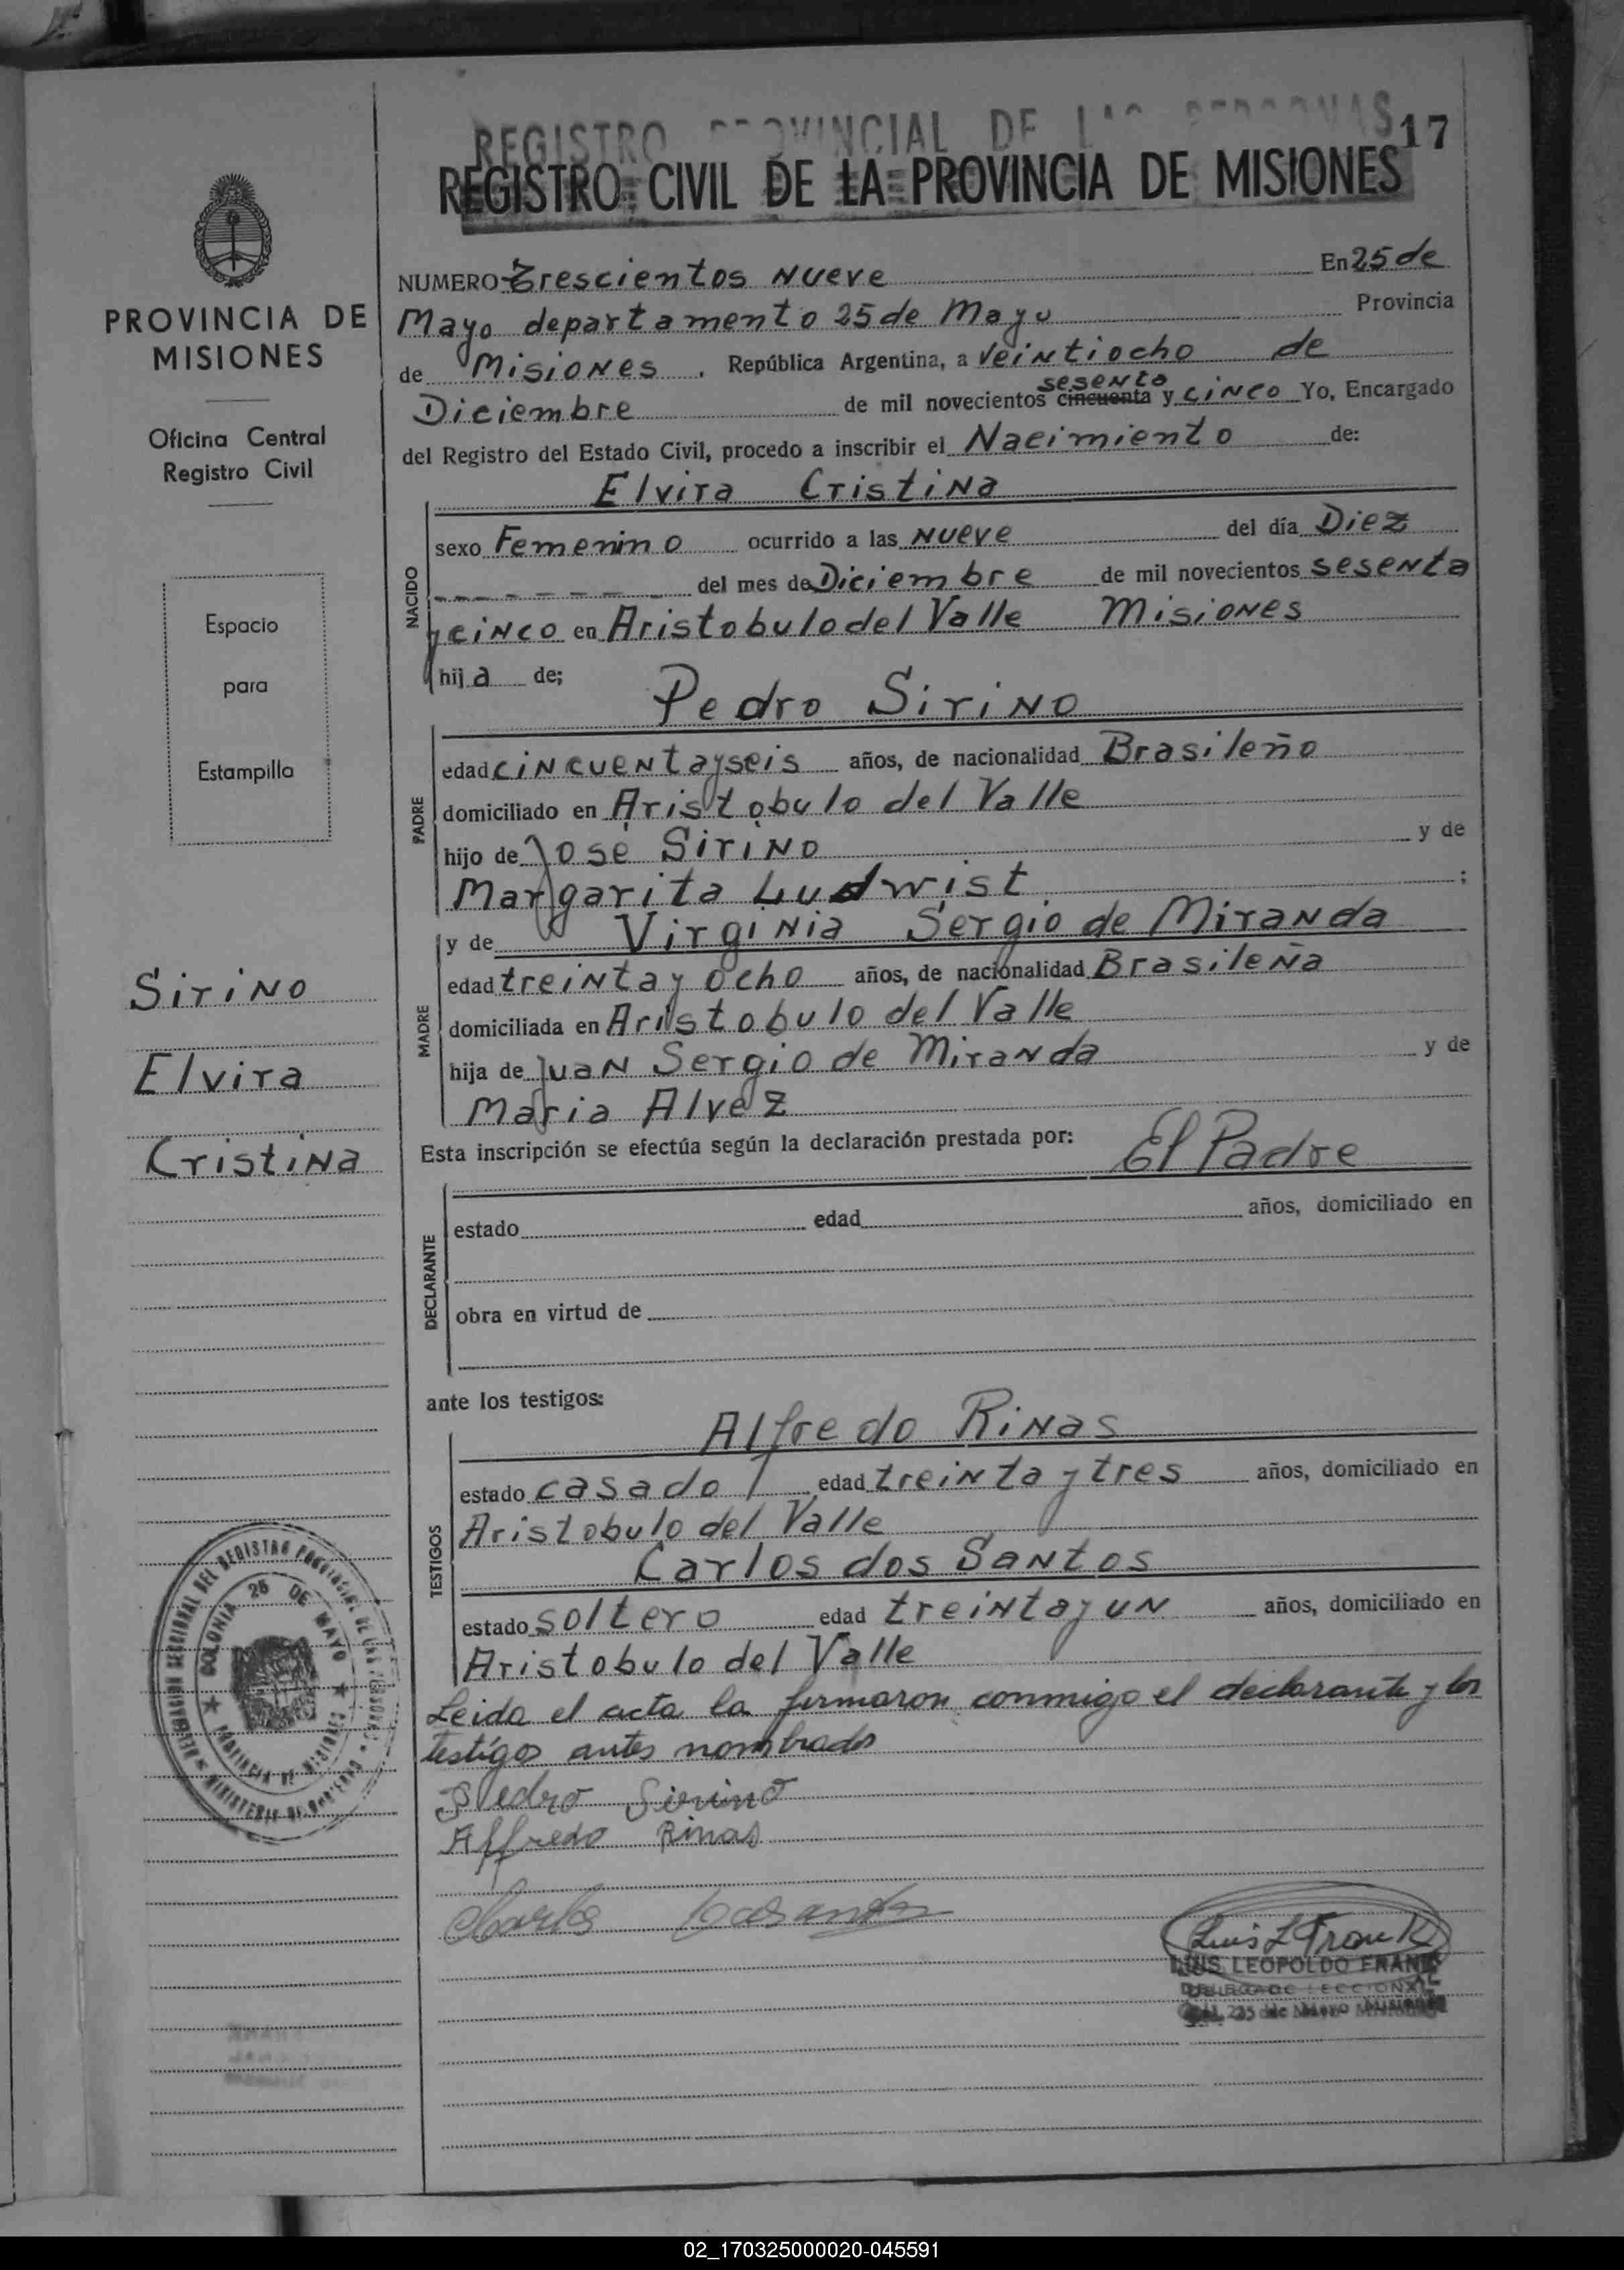 REGISTRO PROVINCIAL DE LAS PERSONAS
17
REGISTRO CIVIL DE LA PROVINCIA DE MISIONES
PROVINCIA DE
MISIONES
Oficina Central
Registro Civil
Espacio
para
Estampilla
Sirino
Elvira
Cristina
NUMERO Trescientos Nueve En 25 de
Mayo departamento 25 de Mayo Provincia
de Misiones, República Argentina, a Veintiocho de
sesenta
Diciembre de mil novecientos cincuenta y cinco Yo, Encargado
del Registro del Estado Civil, procedo a inscribir el Nacimiento de:
Elvira Cristina
NACIDO
sexo Femenino ocurrido a las Nueve del día Diez
del mes de Diciembre de mil novecientos sesenta
y cinco en Aristobulo del Valle Misiones
hija de;
Pedro Sirino
PADRE
edad cincuenta y seis años, de nacionalidad Brasileño
domiciliado en Aristobulo del Valle
hijo de José Sirino y de
Margarita Ludwist ;
y de Virginia Sergio de Miranda
MADRE
edad treinta y ocho años, de nacionalidad Brasileña
domiciliada en Aristobulo del Valle
hija de Juan Sergio de Miranda y de
Maria Alvez
Esta inscripción se efectúa según la declaración prestada por: El Padre
DECLARANTE
estado edad años, domiciliado en
obra en virtud de
ante los testigos:
Alfredo Rinas
TESTIGOS
estado casado edad treinta y tres años, domiciliado en
Aristobulo del Valle
Carlos dos Santos
estado soltero edad treinta y un años, domiciliado en
Aristobulo del Valle
Leida el acta la firmaron conmigo el declarante y los
testigos antes nombrados
Pedro Sirino
Alfredo Rinas
Luis L Frank
LUIS LEOPOLDO FRANK
DELEGADO SECCIONAL
Col. 25 de Mayo Misiones
DELEGACION SECCIONAL DEL REGISTRO PROVINCIAL DE LAS PERSONAS
MINISTERIO DE GOBIERNO
COLONIA 25 DE MAYO
PROVINCIA DE MISIONES
02_170325000020-045591